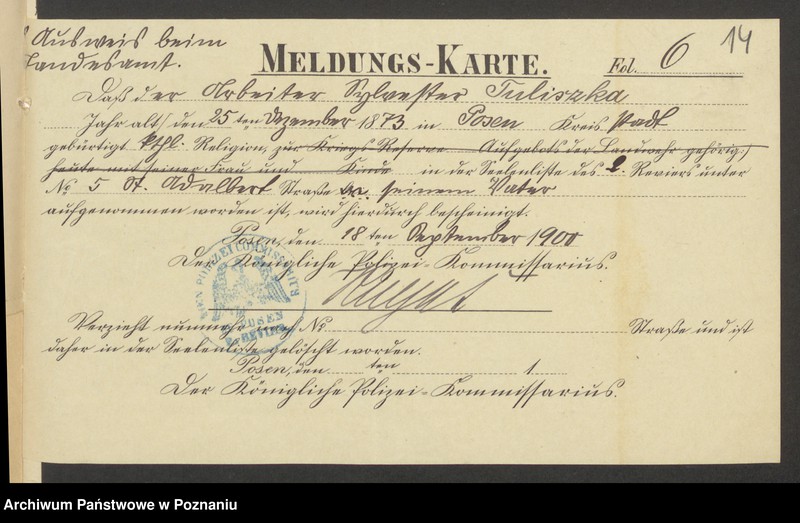 Ausweis beim
Landesamt.
14
MELDUNGS-KARTE.
Fol. 6
Daß der Arbeiter Sylvester Tuliszka
Jahr alt, den 25 ten Dezember 1873 in Posen Kreis Stadt
gebürtigt kthl. Religion, zur Kriegs-Reserve Aufgebots der Landwehr gehörig,
heute mit seiner Frau und Kinde in der Seelenliste des 2. Reviers unter
No 5 St. Adalbert Straße seinem Vater
aufgenommen worden ist, wird hierdurch bescheinigt.
Posen, den 18 ten September 1900
Der Königliche Polizei-Kommissarius.
POSEN
Verzieht nunmehr nach No Straße und ist
daher in der Seelenliste gelöscht worden.
Posen, den ten 1
Der Königliche Polizei-Kommissarius.
Archiwum Państwowe w Poznaniu